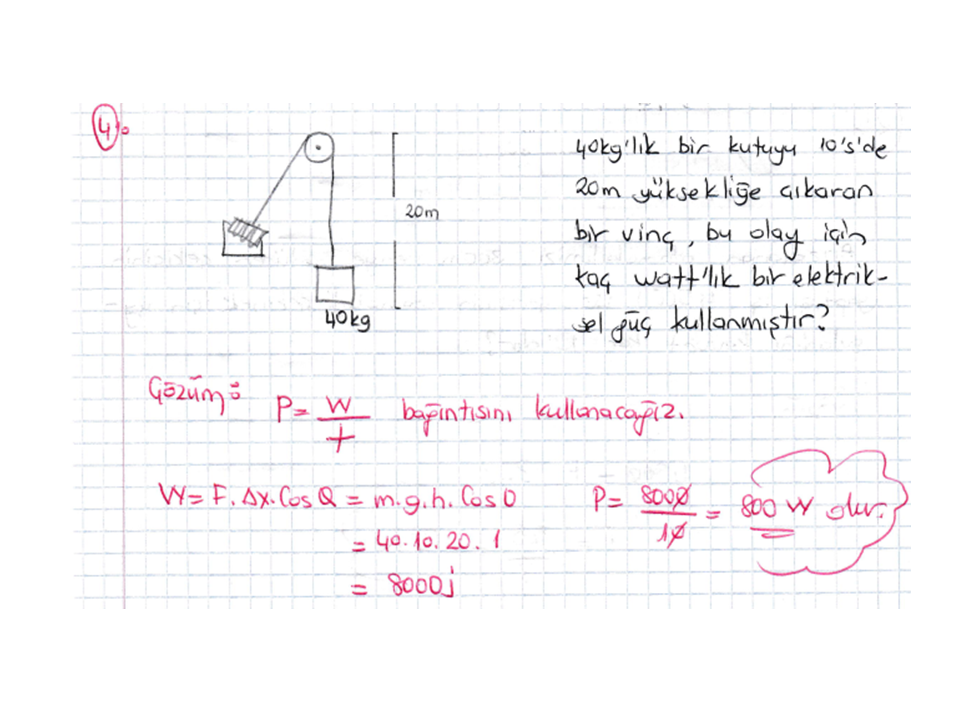 4.
40kg'lık bir kutuyu 10's'de
20m yüksekliğe çıkaran
bir vinç, bu olay için
kaç watt'lık bir elektrik-
sel güç kullanmıştır?
20m
40kg
Çözüm:
P= W/t bağıntısını kullanacağız.
W= F.Δx.Cos Q = m.g.h. Cos 0
= 40.10.20.1
= 8000j
P= 8000/10 = 800 W olur.